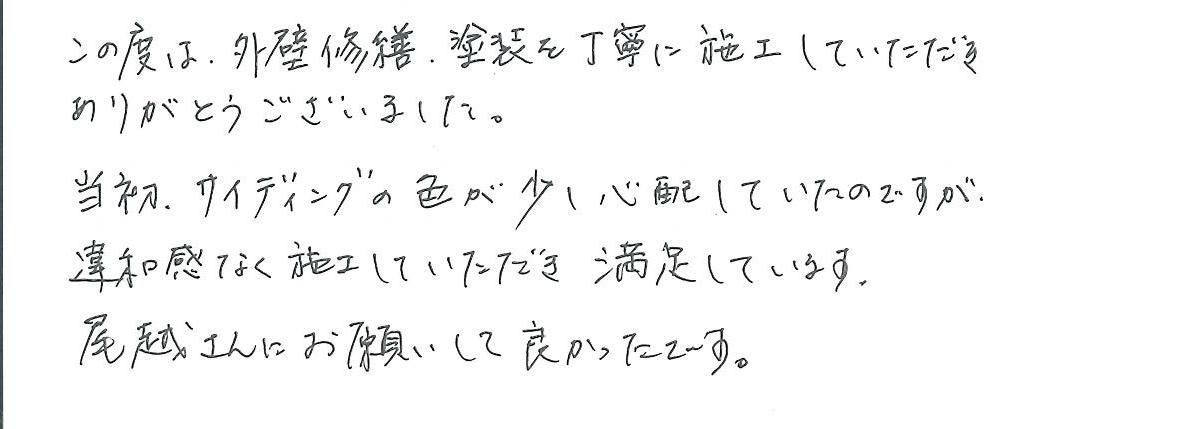 この度は、外壁修繕、塗装を丁寧に施工していただき
ありがとうございました。
当初、サイディングの色が少し心配していたのですが、
違和感なく施工していただき満足しています。
尾越さんにお願いして良かったです。